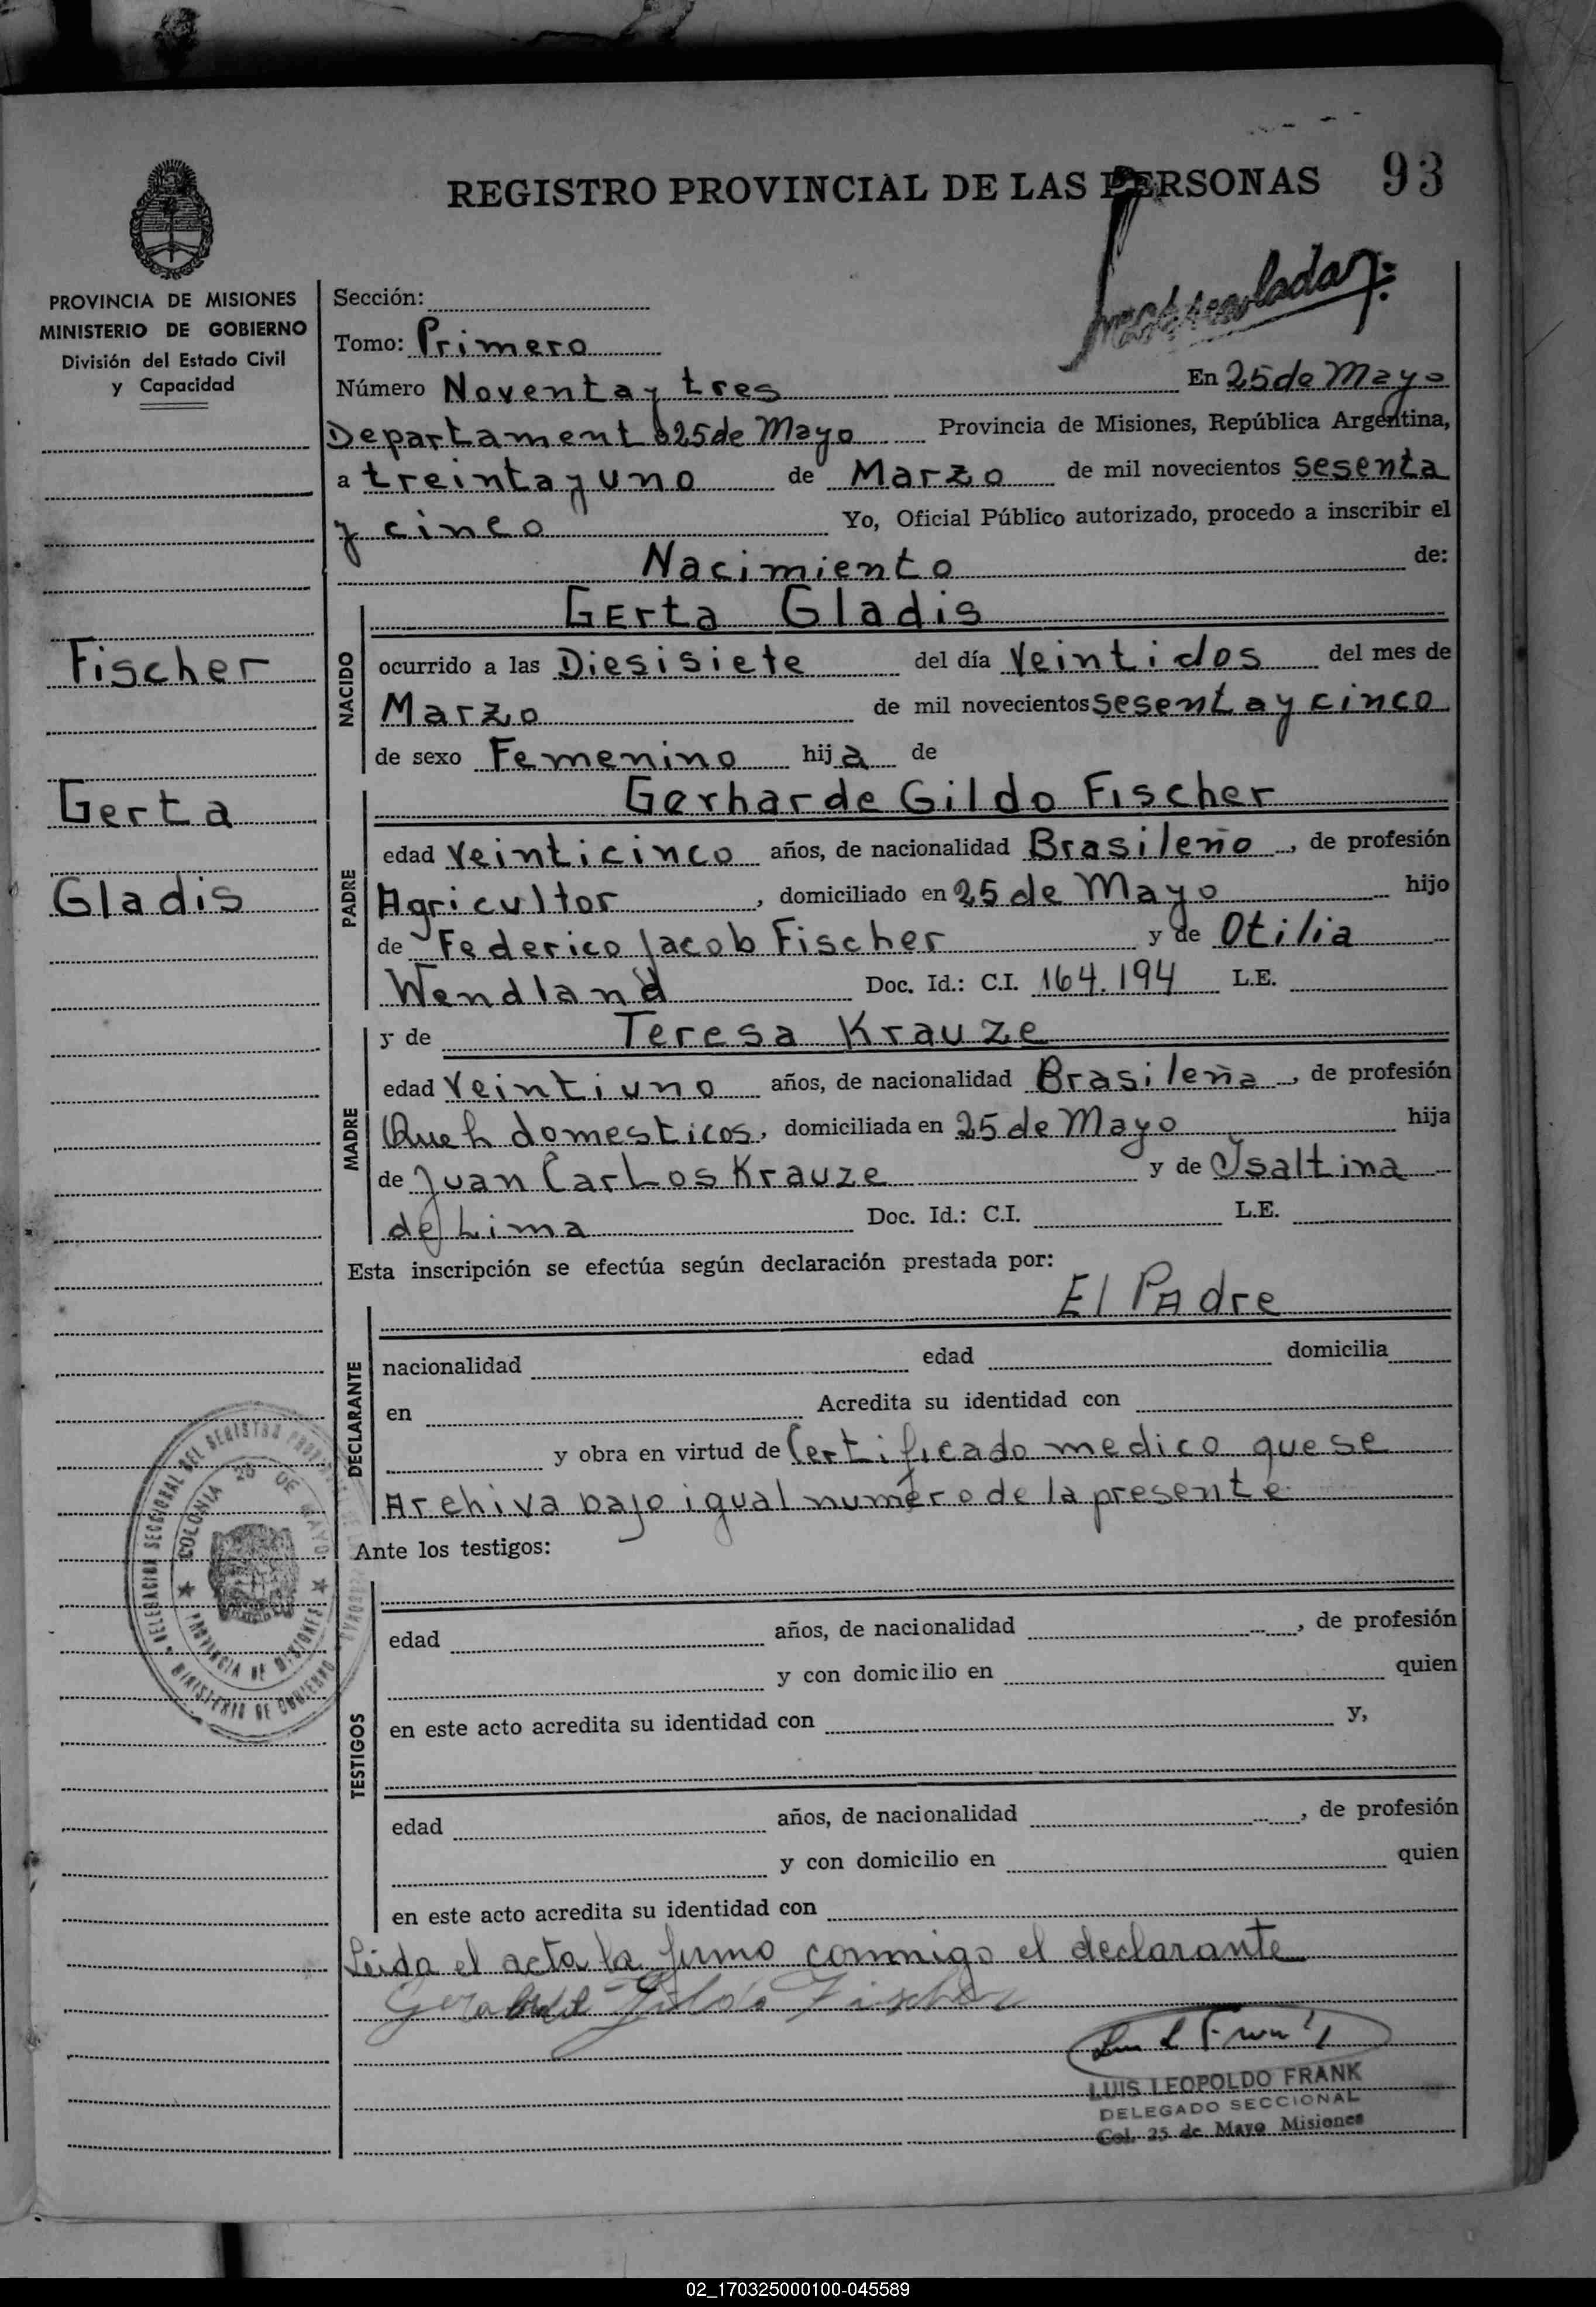 REGISTRO PROVINCIAL DE LAS PERSONAS 93
PROVINCIA DE MISIONES
MINISTERIO DE GOBIERNO
División del Estado Civil
y Capacidad
Fischer
Gerta
Gladis
Sección:
Tomo: Primero
Número Noventa y tres En 25 de Mayo
Departamento 25 de Mayo Provincia de Misiones, República Argentina,
a treinta y uno de Marzo de mil novecientos sesenta
y cinco Yo, Oficial Público autorizado, procedo a inscribir el
Nacimiento de:
NACIDO
Gerta Gladis
ocurrido a las Diesisiete del día Veintidos del mes de
Marzo de mil novecientos sesenta y cinco
de sexo Femenino hija de
PADRE
Gerharde Gildo Fischer
edad Veinticinco años, de nacionalidad Brasileño, de profesión
Agricultor, domiciliado en 25 de Mayo hijo
de Federico Jacob Fischer y de Otilia
Wendland Doc. Id.: C.I. 164.194 L.E.
MADRE
y de Teresa Krauze
edad Veintiuno años, de nacionalidad Brasileña, de profesión
Queh domesticos, domiciliada en 25 de Mayo hija
de Juan Carlos Krauze y de Isaltina
de Lima Doc. Id.: C.I. L.E.
Esta inscripción se efectúa según declaración prestada por:
El Padre
DECLARANTE
nacionalidad edad domicilia
en Acredita su identidad con
y obra en virtud de Certificado medico que se
Archiva bajo igual numéro de la presente
Ante los testigos:
TESTIGOS
edad años, de nacionalidad , de profesión
y con domicilio en quien
en este acto acredita su identidad con y,
edad años, de nacionalidad , de profesión
y con domicilio en quien
en este acto acredita su identidad con
Leida el acta la firmo conmigo el declarante
Gildo Fischer
LUIS LEOPOLDO FRANK
DELEGADO SECCIONAL
Col. 25 de Mayo Misiones
DELEGACION SECCIONAL DEL REGISTRO
COLONIA 25 DE MAYO
PROVINCIA DE MISIONES
MINISTERIO DE GOBIERNO
02_170325000100-045589